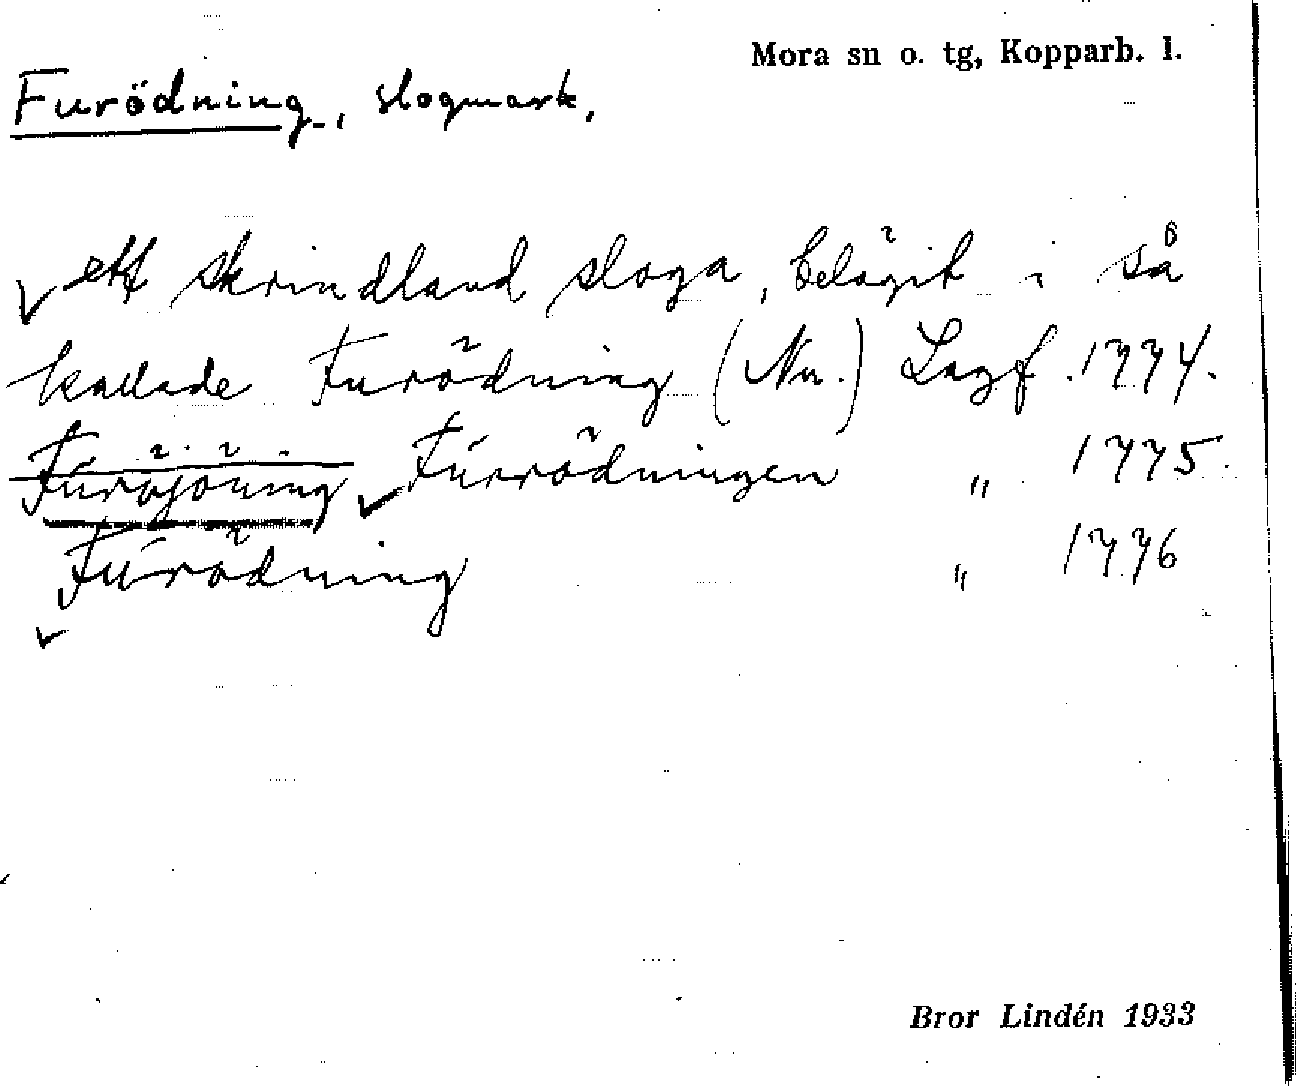 Mora sn o. tg, Kopparb. l.
Furödning, slogmark,
ett skrindland sloga, belägit i så
kallade Furödning (Nu.) Lagf. 1774.
Furödningen " 1775.
Furödning " 1776
Bror Lindén 1933